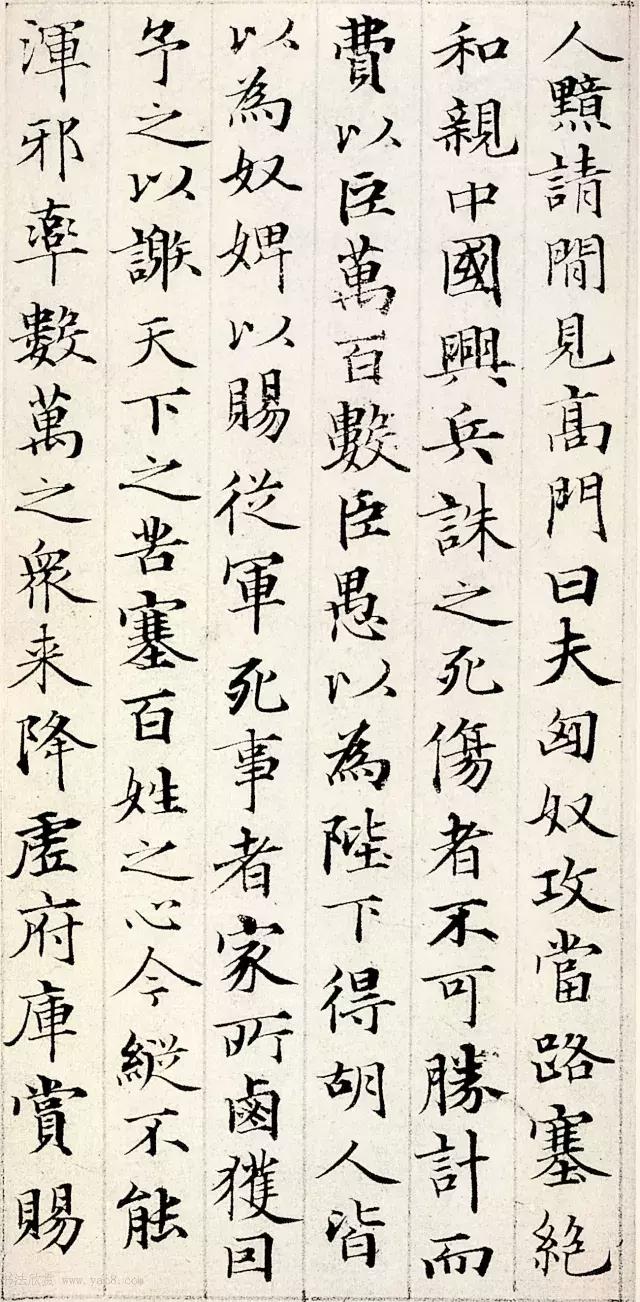 人黯請閒見高門曰夫匈奴攻當路塞絶
和親中國興兵誅之死傷者不可勝計而
費以巨萬百數臣愚以為陛下得胡人皆
以為奴婢以賜從軍死事者家所鹵獲因
予之以謝天下之苦塞百姓之心今縱不能
渾邪率數萬之衆来降虛府庫賞賜
书法欣赏 www.yac8.com